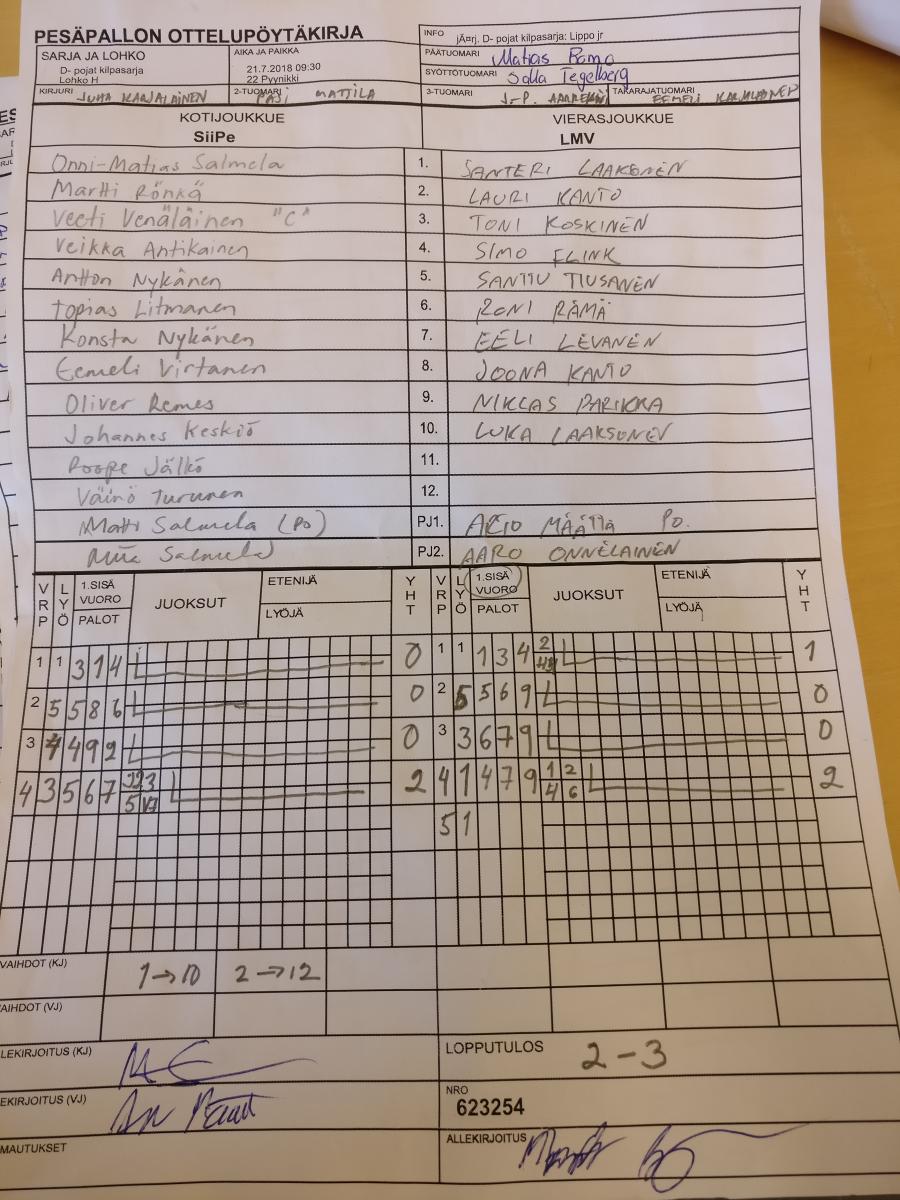 PESÄPALLON OTTELUPÖYTÄKIRJA
INFO jÃ¤rj. D- pojat kilpasarja: Lippo jr
SARJA JA LOHKO
D- pojat kilpasarja
Lohko H
AIKA JA PAIKKA
21.7.2018 09:30
22 Pyynikki
PÄÄTUOMARI Matias Rämö
SYÖTTÖTUOMARI Salla Tegelberg
KIRJURI JUHA KARJALAINEN
2-TUOMARI PASI MATTILA
3-TUOMARI J-P.
TAKARAJATUOMARI EEMELI KARJALAINEN
KOTIJOUKKUE
SiiPe
VIERASJOUKKUE
LMV
Onni-Matias Salmela 1. SANTERI LAAKSONEN
Martti Rönkä 2. LAURI KANTO
Veeti Venäläinen "C" 3. TONI KOSKINEN
Veikka Antikainen 4. SIMO FLINK
Antton Nykänen 5. SANTTU TIUSANEN
Topias Litmanen 6. RONI RÄMÄ
Konsta Nykänen 7. EELI LEVANEN
Eemeli Virtanen 8. JOONA KANTO
Oliver Remes 9. NIKLAS PARIKKA
Johannes Keskiö 10. LUKA LAAKSONEN
Roope Jälkö 11.
Väinö Turunen 12.
Matti Salmela (PO) PJ1. ARTO MÄÄTTÄ PO.
Miia Salmela PJ2. AARO ONNELAINEN
VRP LYÖ 1.SISÄ VUORO PALOT JUOKSUT ETENIJÄ LYÖJÄ YHT VRP LYÖ 1.SISÄ VUORO PALOT JUOKSUT ETENIJÄ LYÖJÄ YHT
1 1 3 1 4 0 1 1 1 3 4 2 1
2 5 5 8 6 0 2 5 5 6 9 0
3 4 4 9 2 0 3 3 6 7 9 0
4 3 5 6 7 3 5 2 4 1 4 7 9 1 2 4 6 2
5 1
VAIHDOT (KJ) 1→10 2→12
AIHDOT (VJ)
LEKIRJOITUS (KJ)
LOPPUTULOS 2-3
EKIRJOITUS (VJ)
NRO
623254
MAUTUKSET
ALLEKIRJOITUS